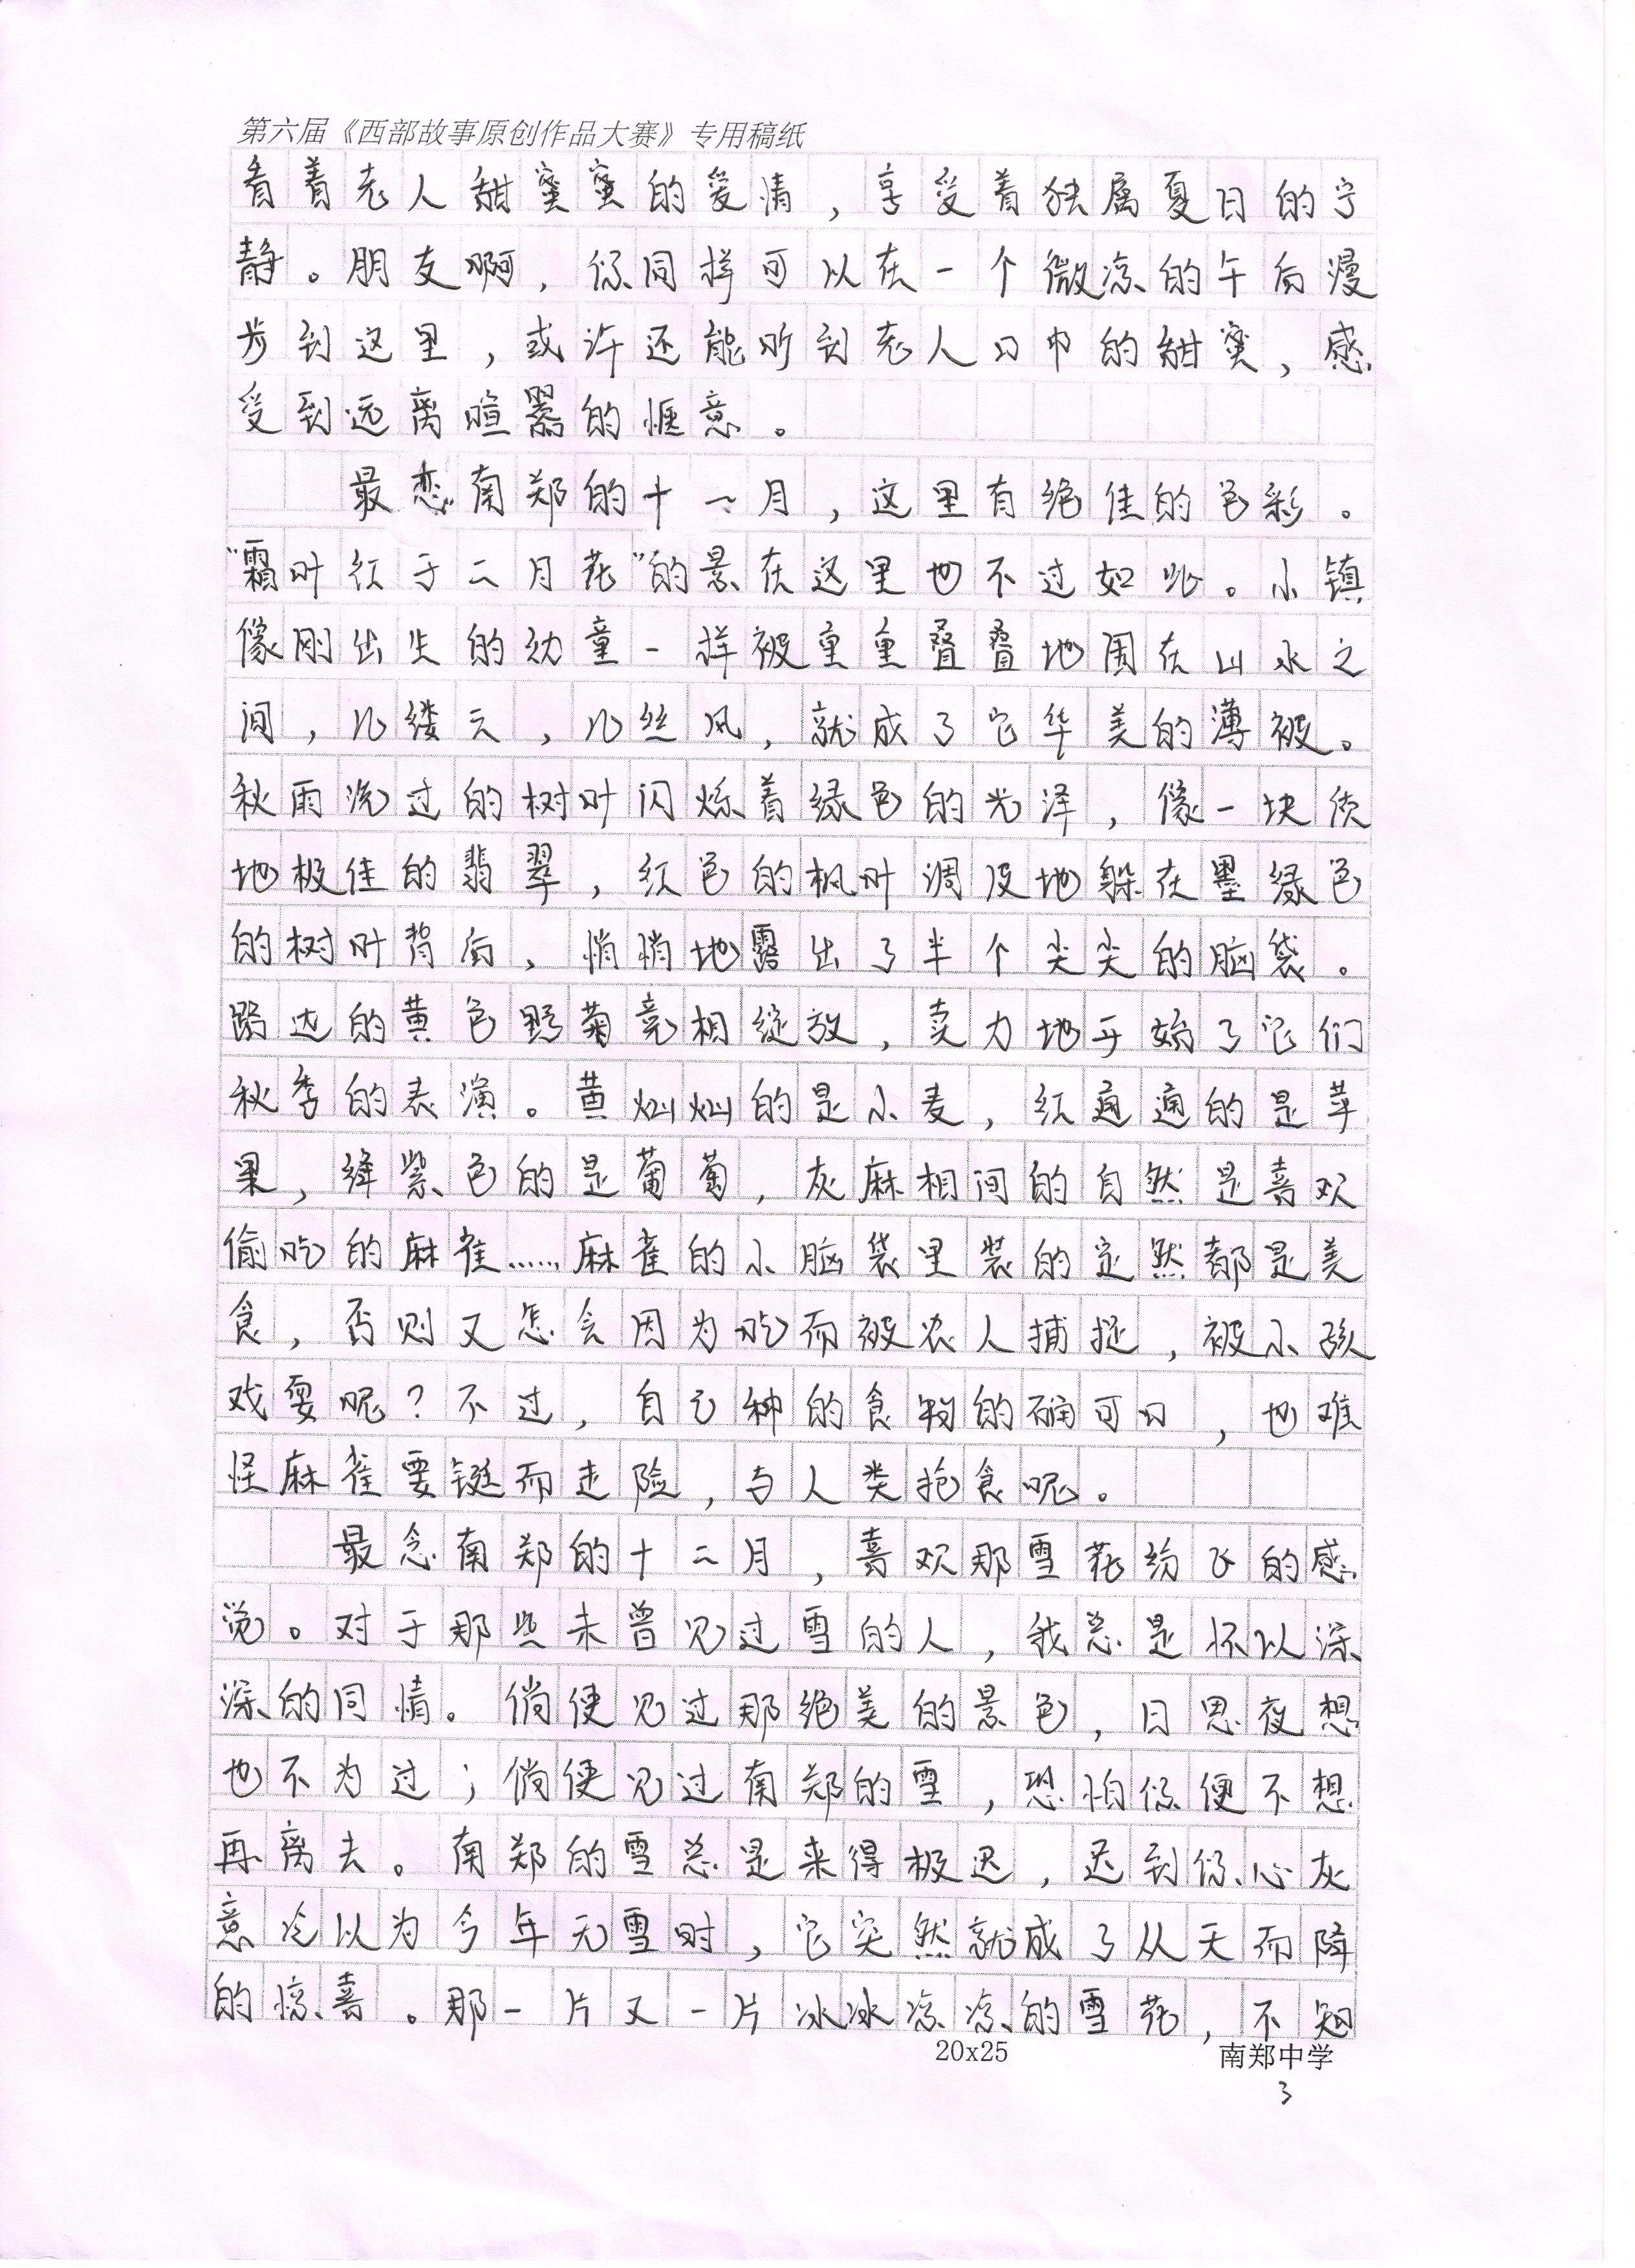 第六届《西部故事原创作品大赛》专用稿纸
看着老人甜蜜蜜的爱情，享受着独属夏日的宁
静。朋友啊，你同样可以在一个微凉的午后漫
步到这里，或许还能听到老人口中的甜蜜，感
受到远离喧嚣的惬意。
最恋南郑的十一月，这里有绝佳的色彩。
“霜叶红于二月花”的景在这里也不过如此。小镇
像刚出生的幼童一样被重重叠叠地围在山水之
间，几缕云，几丝风，就成了它华美的薄被。
秋雨洗过的树叶闪烁着绿色的光泽，像一块质
地极佳的翡翠，红色的枫叶调皮地躲在墨绿色
的树叶背后，悄悄地露出了半个尖尖的脑袋。
路边的黄色野菊竞相绽放，卖力地开始了它们
秋季的表演。黄灿灿的是小麦，红通通的是苹
果，绛紫色的是葡萄，灰麻相间的自然是喜欢
偷吃的麻雀……麻雀的小脑袋里装的定然都是美
食，否则又怎会因为吃而被农人捕捉，被小孩
戏耍呢？不过，自己种的食物的确可口，也难
怪麻雀要铤而走险，与人类抢食呢。
最念南郑的十二月，喜欢那雪花纷飞的感
觉。对于那些未曾见过雪的人，我总是怀以深
深的同情。倘使见过那绝美的景色，日思夜想
也不为过；倘使见过南郑的雪，恐怕你便不想
再离去。南郑的雪总是来得极迟，迟到你心灰
意冷以为今年无雪时，它突然就成了从天而降
的惊喜。那一片又一片冰冰凉凉的雪花，不知
20x25 南郑中学
3